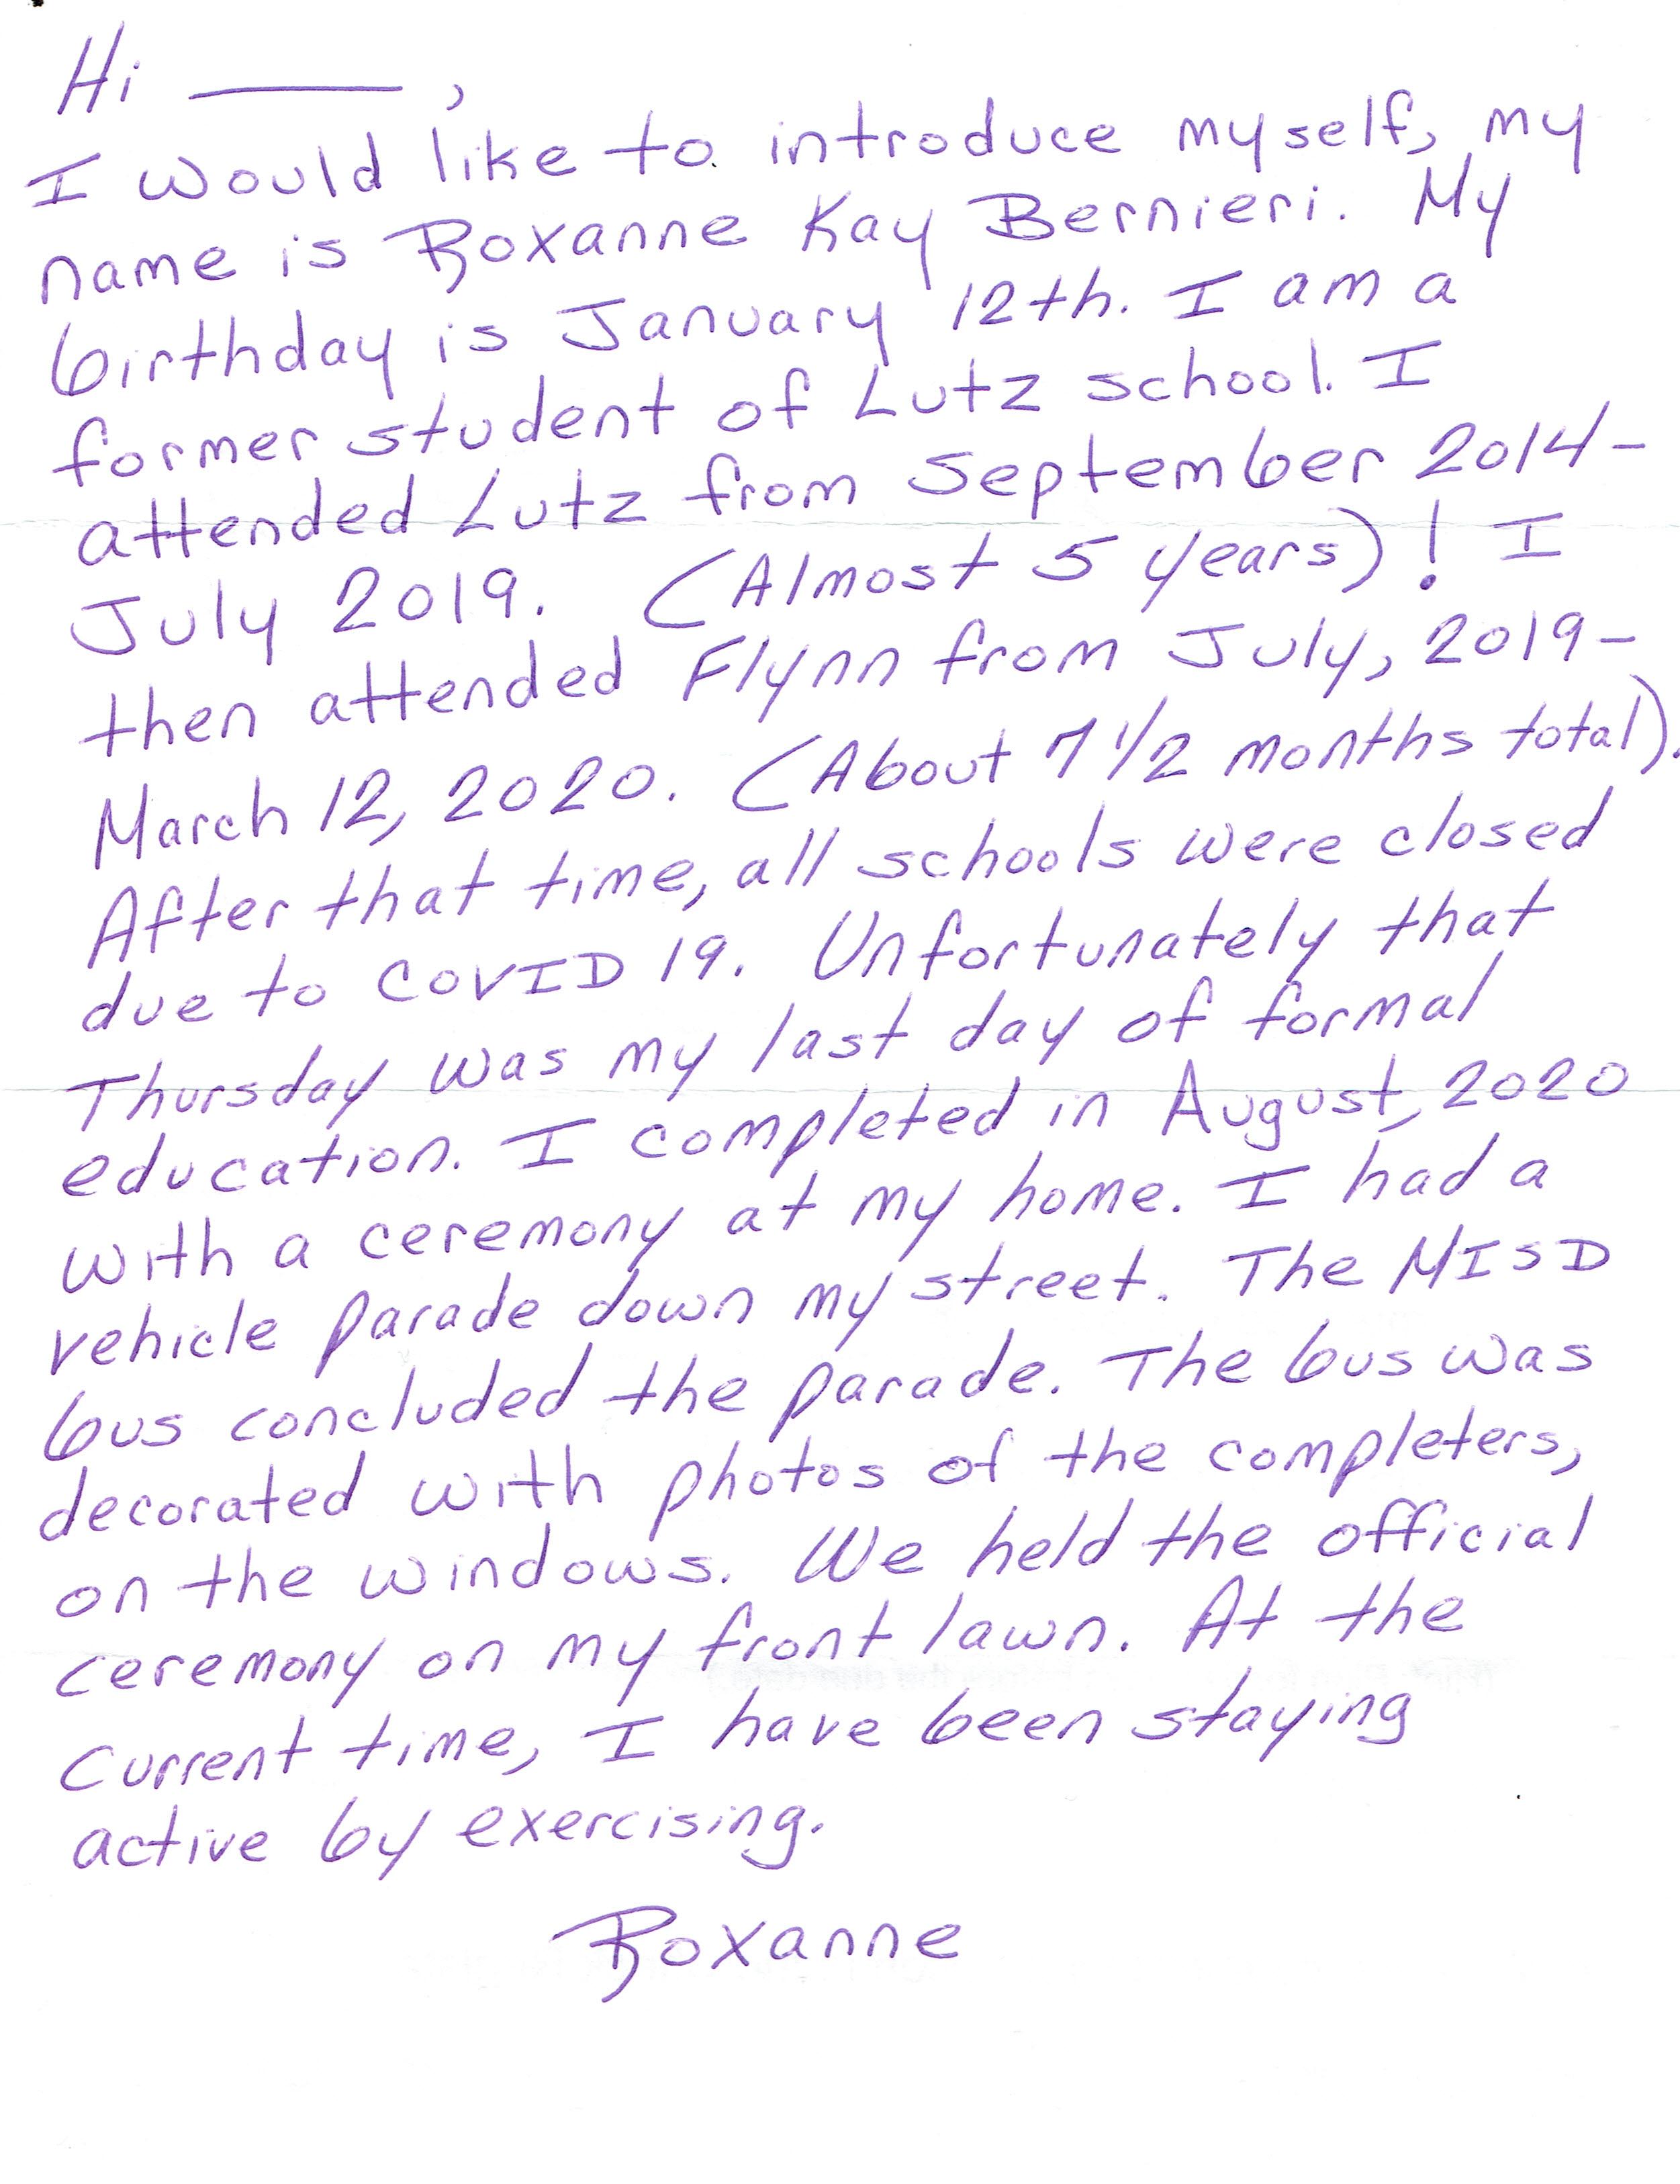 Hi ———,
I would like to introduce myself, my
name is Roxanne Kay Bernieri. My
birthday is January 12th. I am a
former student of Lutz school. I
attended Lutz from September 2014-
July 2019. (Almost 5 years)! I
then attended Flynn from July, 2019-
March 12, 2020. (About 7 1/2 months total).
After that time, all schools were closed
due to COVID 19. Unfortunately that
Thursday was my last day of formal
education. I completed in August, 2020
with a ceremony at my home. I had a
vehicle parade down my street. The MISD
bus concluded the parade. The bus was
decorated with photos of the completers,
on the windows. We held the official
ceremony on my front lawn. At the
current time, I have been staying
active by exercising.
Roxanne